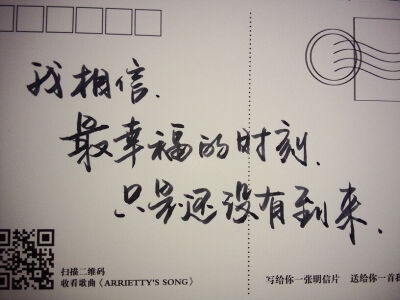 我相信.
最幸福的时刻.
只是还没有到来.
扫描二维码
收看歌曲《ARRIETTY'S SONG》
写给你一张明信片 送给你一首